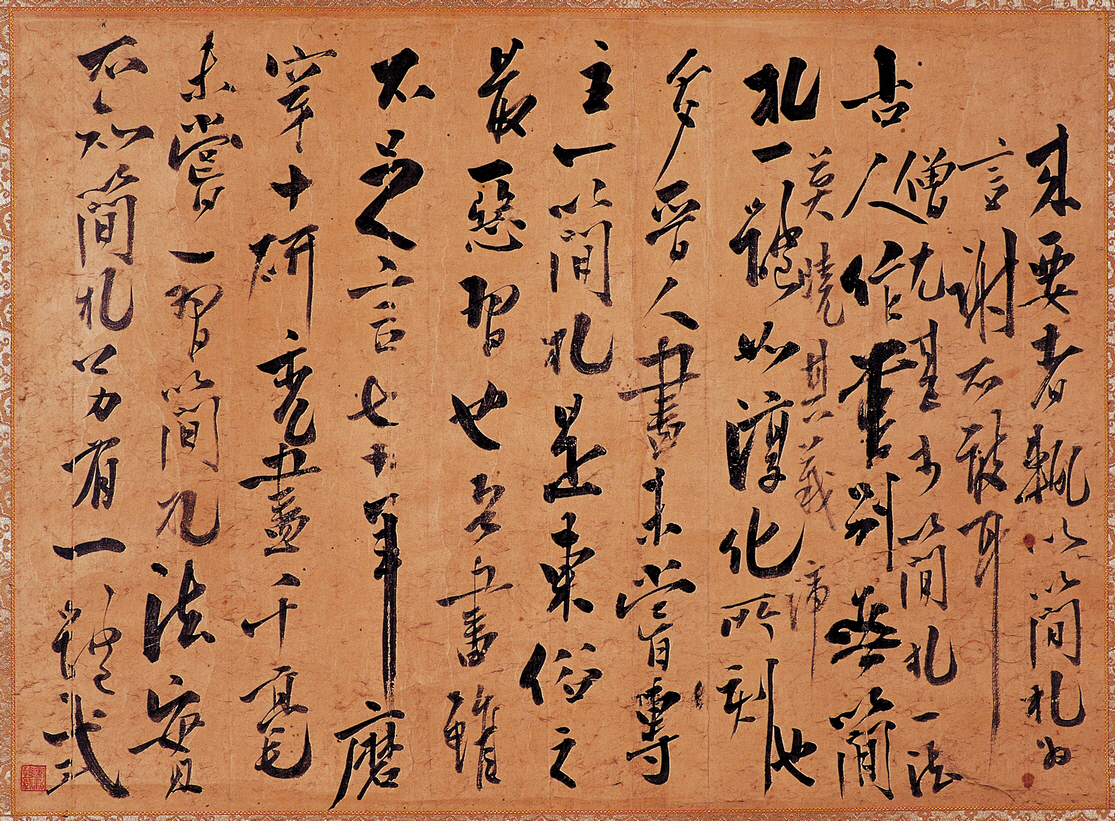 古人作書別無簡
札一體如淳化所刻也
多晉人書未嘗專
主一簡札是東俗之
最惡習也吾書雖
不足言七十年磨
穿十研禿盡千毫
未嘗一習簡札法實
不知簡札另有一體式
來要者輒以簡札爲
言謝不敢耳
僧尤甚於簡札一法
莫曉其義諦